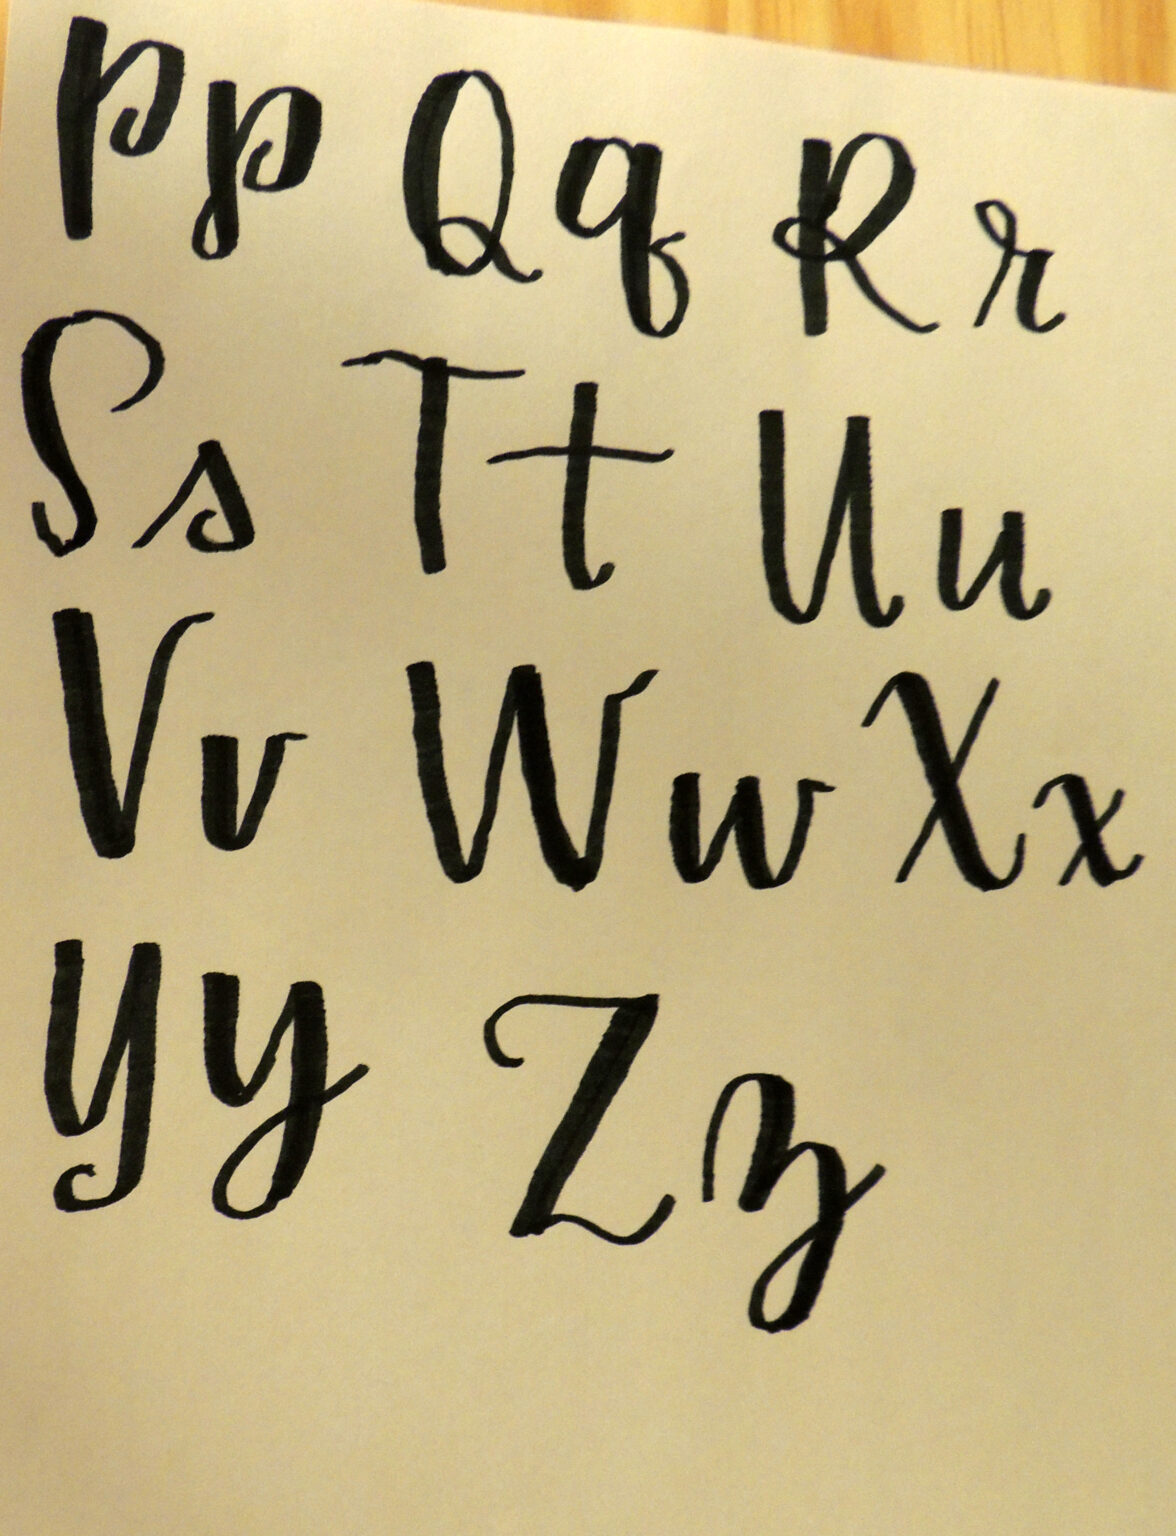 Pp Qq Rr
Ss Tt Uu
Vv Ww Xx
Yy Zz